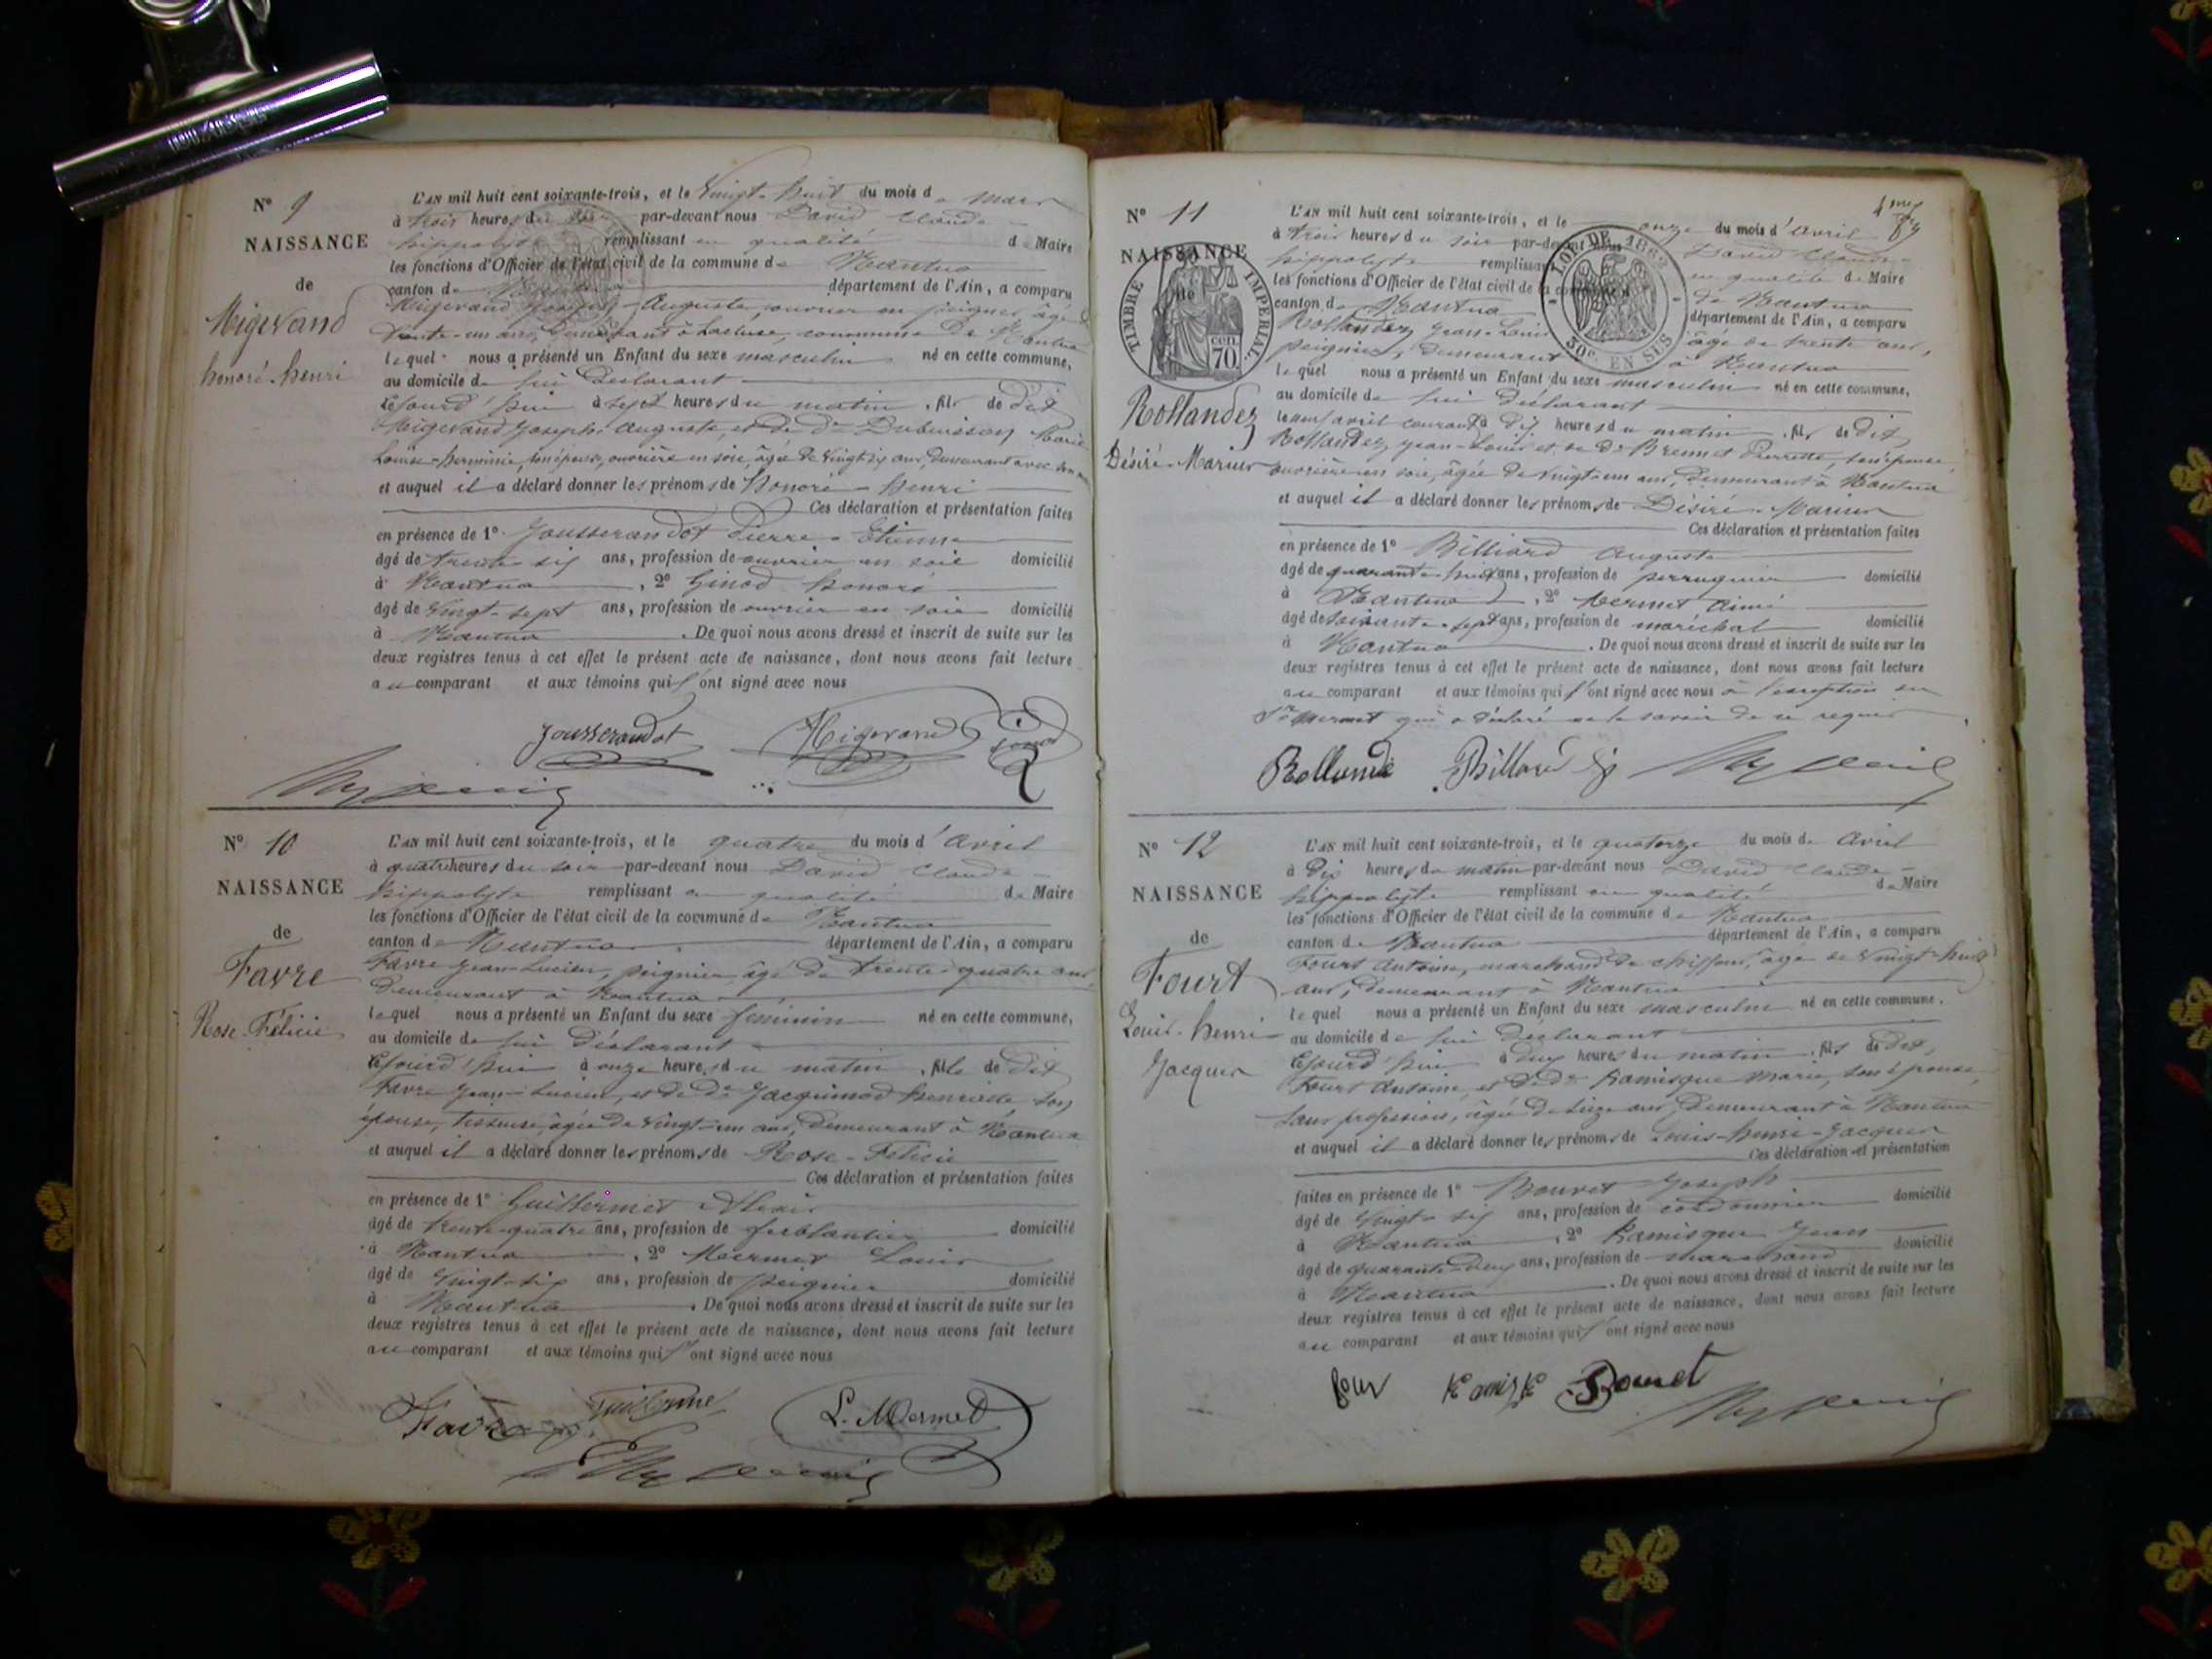 N° 9
NAISSANCE
de
Migevand
honoré-henri
L'AN mil huit cent soixante-trois, et le Vingt-huit du mois de mars
à trois heures du soir par-devant nous David Claude-
hippolyte remplissant en qualité de Maire
les fonctions d'Officier de l'état civil de la commune de Nantua
canton de département de l'Ain, a comparu
Migevand Joseph-Auguste, ouvrier en peignes, âgé de
trente-un ans, demeurant à Lacluse, commune de Nantua
lequel nous a présenté un Enfant du sexe masculin né en cette commune,
au domicile de lui Déclarant
cejourd'hui à sept heures du matin, fils de dit
Migevand Joseph-Auguste, et de De Dubuisson Marie
Louise-herminie, son épouse, ouvrière en soie, âgée de Vingt-six ans, demeurant avec son
et auquel il a déclaré donner les prénoms de honoré-henri
Ces déclaration et présentation faites
en présence de 1° Jousserandot Pierre-Etienne
âgé de trente-six ans, profession de ouvrier en soie domicilié
à Nantua, 2° Ginod honoré
âgé de Vingt-sept ans, profession de ouvrier en soie domicilié
à Nantua. De quoi nous avons dressé et inscrit de suite sur les
deux registres tenus à cet effet le présent acte de naissance, dont nous avons fait lecture
au comparant et aux témoins qui ont signé avec nous
Jousserandot Migevand
N° 10
NAISSANCE
de
Favre
Rose-Félicie
L'AN mil huit cent soixante-trois, et le quatre du mois d'avril
à quatre heures du soir par-devant nous David Claude-
hippolyte remplissant en qualité de Maire
les fonctions d'Officier de l'état civil de la commune de Nantua
canton de Nantua département de l'Ain, a comparu
Favre Jean-Lucien, peignier, âgé de trente-quatre ans,
demeurant à Nantua
lequel nous a présenté un Enfant du sexe féminin né en cette commune,
au domicile de lui Déclarant
cejourd'hui à onze heures du matin, fille de dit
Favre Jean-Lucien, et de De Jacquinod henriette son
épouse, tisseuse, âgée de Vingt-un ans, demeurant à Nantua
et auquel il a déclaré donner les prénoms de Rose-Félicie
Ces déclaration et présentation faites
en présence de 1° Guillermet Alexis
âgé de trente-quatre ans, profession de ferblantier domicilié
à Nantua, 2° Mermet Louis
âgé de Vingt-six ans, profession de peignier domicilié
à Nantua. De quoi nous avons dressé et inscrit de suite sur les
deux registres tenus à cet effet le présent acte de naissance, dont nous avons fait lecture
au comparant et aux témoins qui ont signé avec nous
Favre L. Mermet
N° 11
NAISSANCE
de
TIMBRE IMPERIAL
70 cen.
LOI DE 1862
30c. EN SUS
Rollandez
Désiré-Marius
L'AN mil huit cent soixante-trois, et le onze du mois d'avril
à trois heures du soir par-devant nous David Claude-
hippolyte remplissant en qualité de Maire
les fonctions d'Officier de l'état civil de la commune de Nantua
canton de Nantua département de l'Ain, a comparu
Rollandez Jean-Louis âgé de trente ans,
peignier, demeurant à Nantua
lequel nous a présenté un Enfant du sexe masculin né en cette commune,
au domicile de lui Déclarant
le neuf avril courant à dix heures du matin, fils de dit
Rollandez Jean-Louis et de De Brennet Pierrette, son épouse,
ouvrière en soie, âgée de vingt-un ans, demeurant à Nantua
et auquel il a déclaré donner les prénoms de Désiré-Marius
Ces déclaration et présentation faites
en présence de 1° Billiard Auguste
âgé de quarante-huit ans, profession de perruquier domicilié
à Nantua, 2° Mermet Aimé
âgé de soixante-sept ans, profession de maréchal domicilié
à Nantua. De quoi nous avons dressé et inscrit de suite sur les
deux registres tenus à cet effet le présent acte de naissance, dont nous avons fait lecture
au comparant et aux témoins qui ont signé avec nous à l'exception du
Sr Mermet qui a déclaré ne le savoir de ce requis
N° 12
NAISSANCE
de
Fourt
Louis-henri-
Jacques
L'AN mil huit cent soixante-trois, et le quatorze du mois de avril
à Dix heures du matin par-devant nous David Claude-
hippolyte remplissant en qualité de Maire
les fonctions d'Officier de l'état civil de la commune de Nantua
canton de Nantua département de l'Ain, a comparu
Fourt Antoine, marchand de chiffons, âgé de Vingt-huit
ans, demeurant à Nantua
lequel nous a présenté un Enfant du sexe masculin né en cette commune.
au domicile de lui Déclarant
cejourd'hui à deux heures du matin, fils de dit
Fourt Antoine, et de De Ramisque Marie, son épouse,
sans profession, âgée de seize ans, demeurant à Nantua
et auquel il a déclaré donner les prénoms de Louis-henri-Jacques
Ces déclaration et présentation
faites en présence de 1° Bouvet Joseph
âgé de Vingt-six ans, profession de cordonnier domicilié
à Nantua, 2° Ramisque Jean
âgé de quarante-deux ans, profession de marchand domicilié
à Nantua. De quoi nous avons dressé et inscrit de suite sur les
deux registres tenus à cet effet le présent acte de naissance, dont nous avons fait lecture
au comparant et aux témoins qui ont signé avec nous